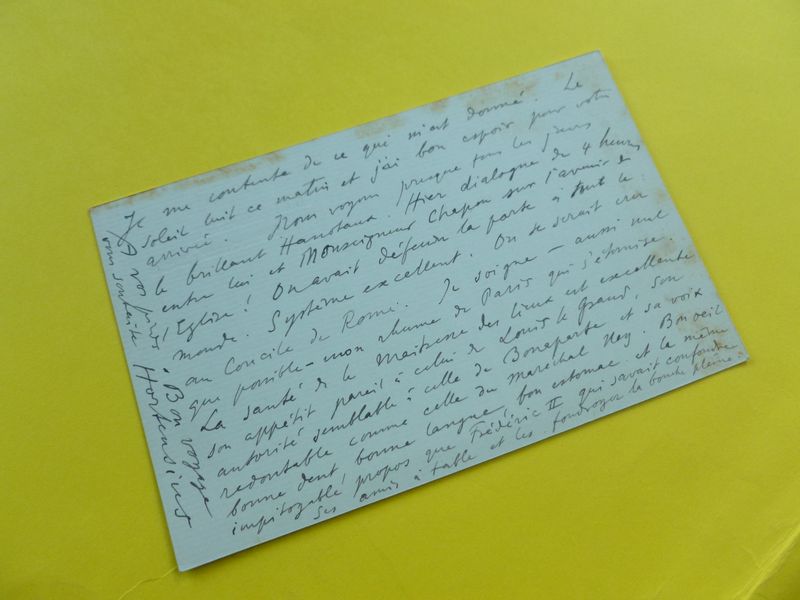 Je me contente de ce qui m'est donné. Le
soleil luit ce matin et j'ai bon espoir pour votre
arrivée. Nous voyons presque tous les jours
le brillant Hanotaux. Hier dialogue de 4 heures
entre lui et Monseigneur Chapon sur l'avenir de
l'Eglise! On avait défendu la porte à tout le
monde. Système excellent. On se serait cru
au Concile de Rome. Je soigne – aussi seul
que possible – mon rhume de Paris qui s'éternise.
La santé de la Maîtresse des lieux est excellente
son appétit pareil à celui de Louis le Grand, son
autorité semblable à celle de Bonaparte et sa voix
redoutable comme celle du maréchal Ney. Bon oeil
bonne dent bonne langue, bon estomac et la même
impitoyable propos que Frédéric II qui savait confondre
ses amis à table et les foudroyer la bouche pleine.
A vos pieds. Bon voyage
vous souhaite Hortensius